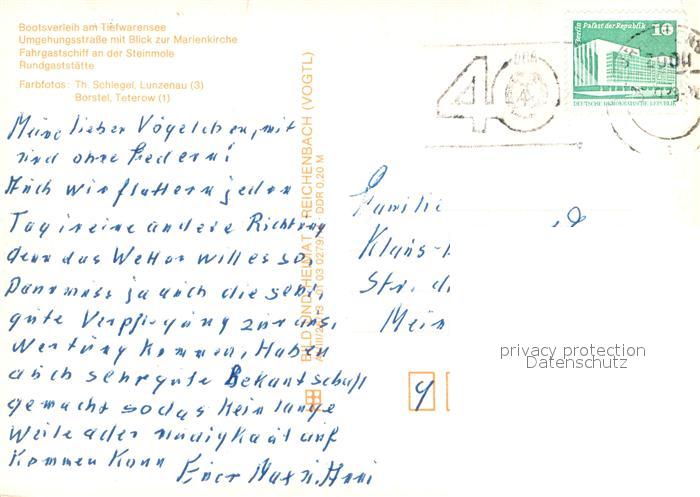 Bootsverleih am Tiefwarensee
Umgehungsstraße mit Blick zur Marienkirche
Fahrgastschiff an der Steinmole
Rundgaststätte
Farbfotos: Th. Schlegel, Lunzenau (3)
Borstel, Teterow (1)
Meine lieber Vögelchen, mit
und ohne Federn!
Auch wir flattern jeden
Tag in eine andere Richtung
denn das Wetter will es so,
Dann muss ja auch die sehr
gute Verpflegung zur aus-
Wertung kommen, Haben
auch sehr gute Bekantschaft
gemacht sodas kein lange
Weile oder müdigkeit auf
Kommen kann
BILD UND HEIMAT REICHENBACH (VOGTL)
DDR 0,20 M
40
DDR
Berlin Palast der Republik
10
DEUTSCHE DEMOKRATISCHE REPUBLIK
Familie
Klaus-
Str. d
4
privacy protection
Datenschutz